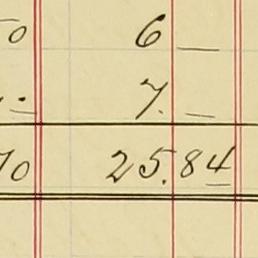 50 6 —
7. —
70 25.84